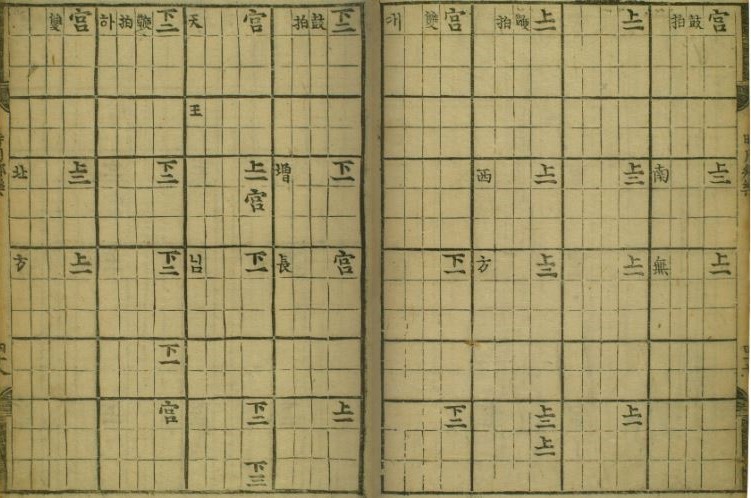 宮 上二 上一
鼓
拍
南 無
上一 上三 上二 上一
上一 上二 上三 上三 上二
鞭
拍
西 方
宮 下一 下二
雙
下二 下一 宮 上一
鼓
拍
增 長
宮 上一 宮 下一 下二 下三
天 王 님
下二 下二 下二 下一 宮
鞭
拍
하
宮 上二 上一
雙
北 方